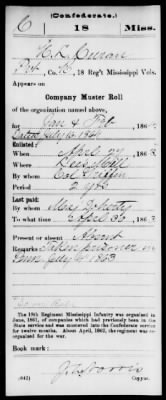 (Confederate.)
C 18 Miss.
Pvt, Co. , 18 Reg't Mississippi Vols.
Appears on
Company Muster Roll
of the organization named above,
for Jan & Feb , 186
dated July 16, 186
Enlisted:
When April 27 , 186
Where
By whom Col Griffin
Period 2 yrs
Last paid:
By whom Maj
To what time April 30 , 186
Present or absent Absent
Remarks: Taken prisoner in
July 1863
The 18th Regiment Mississippi Infantry was organized in
June, 1861, of companies which had previously been in the
State service and was mustered into the Confederate service
for twelve months. About April, 1862, the regiment was re-
organized for the war.
Book mark:
(642) Copyist.